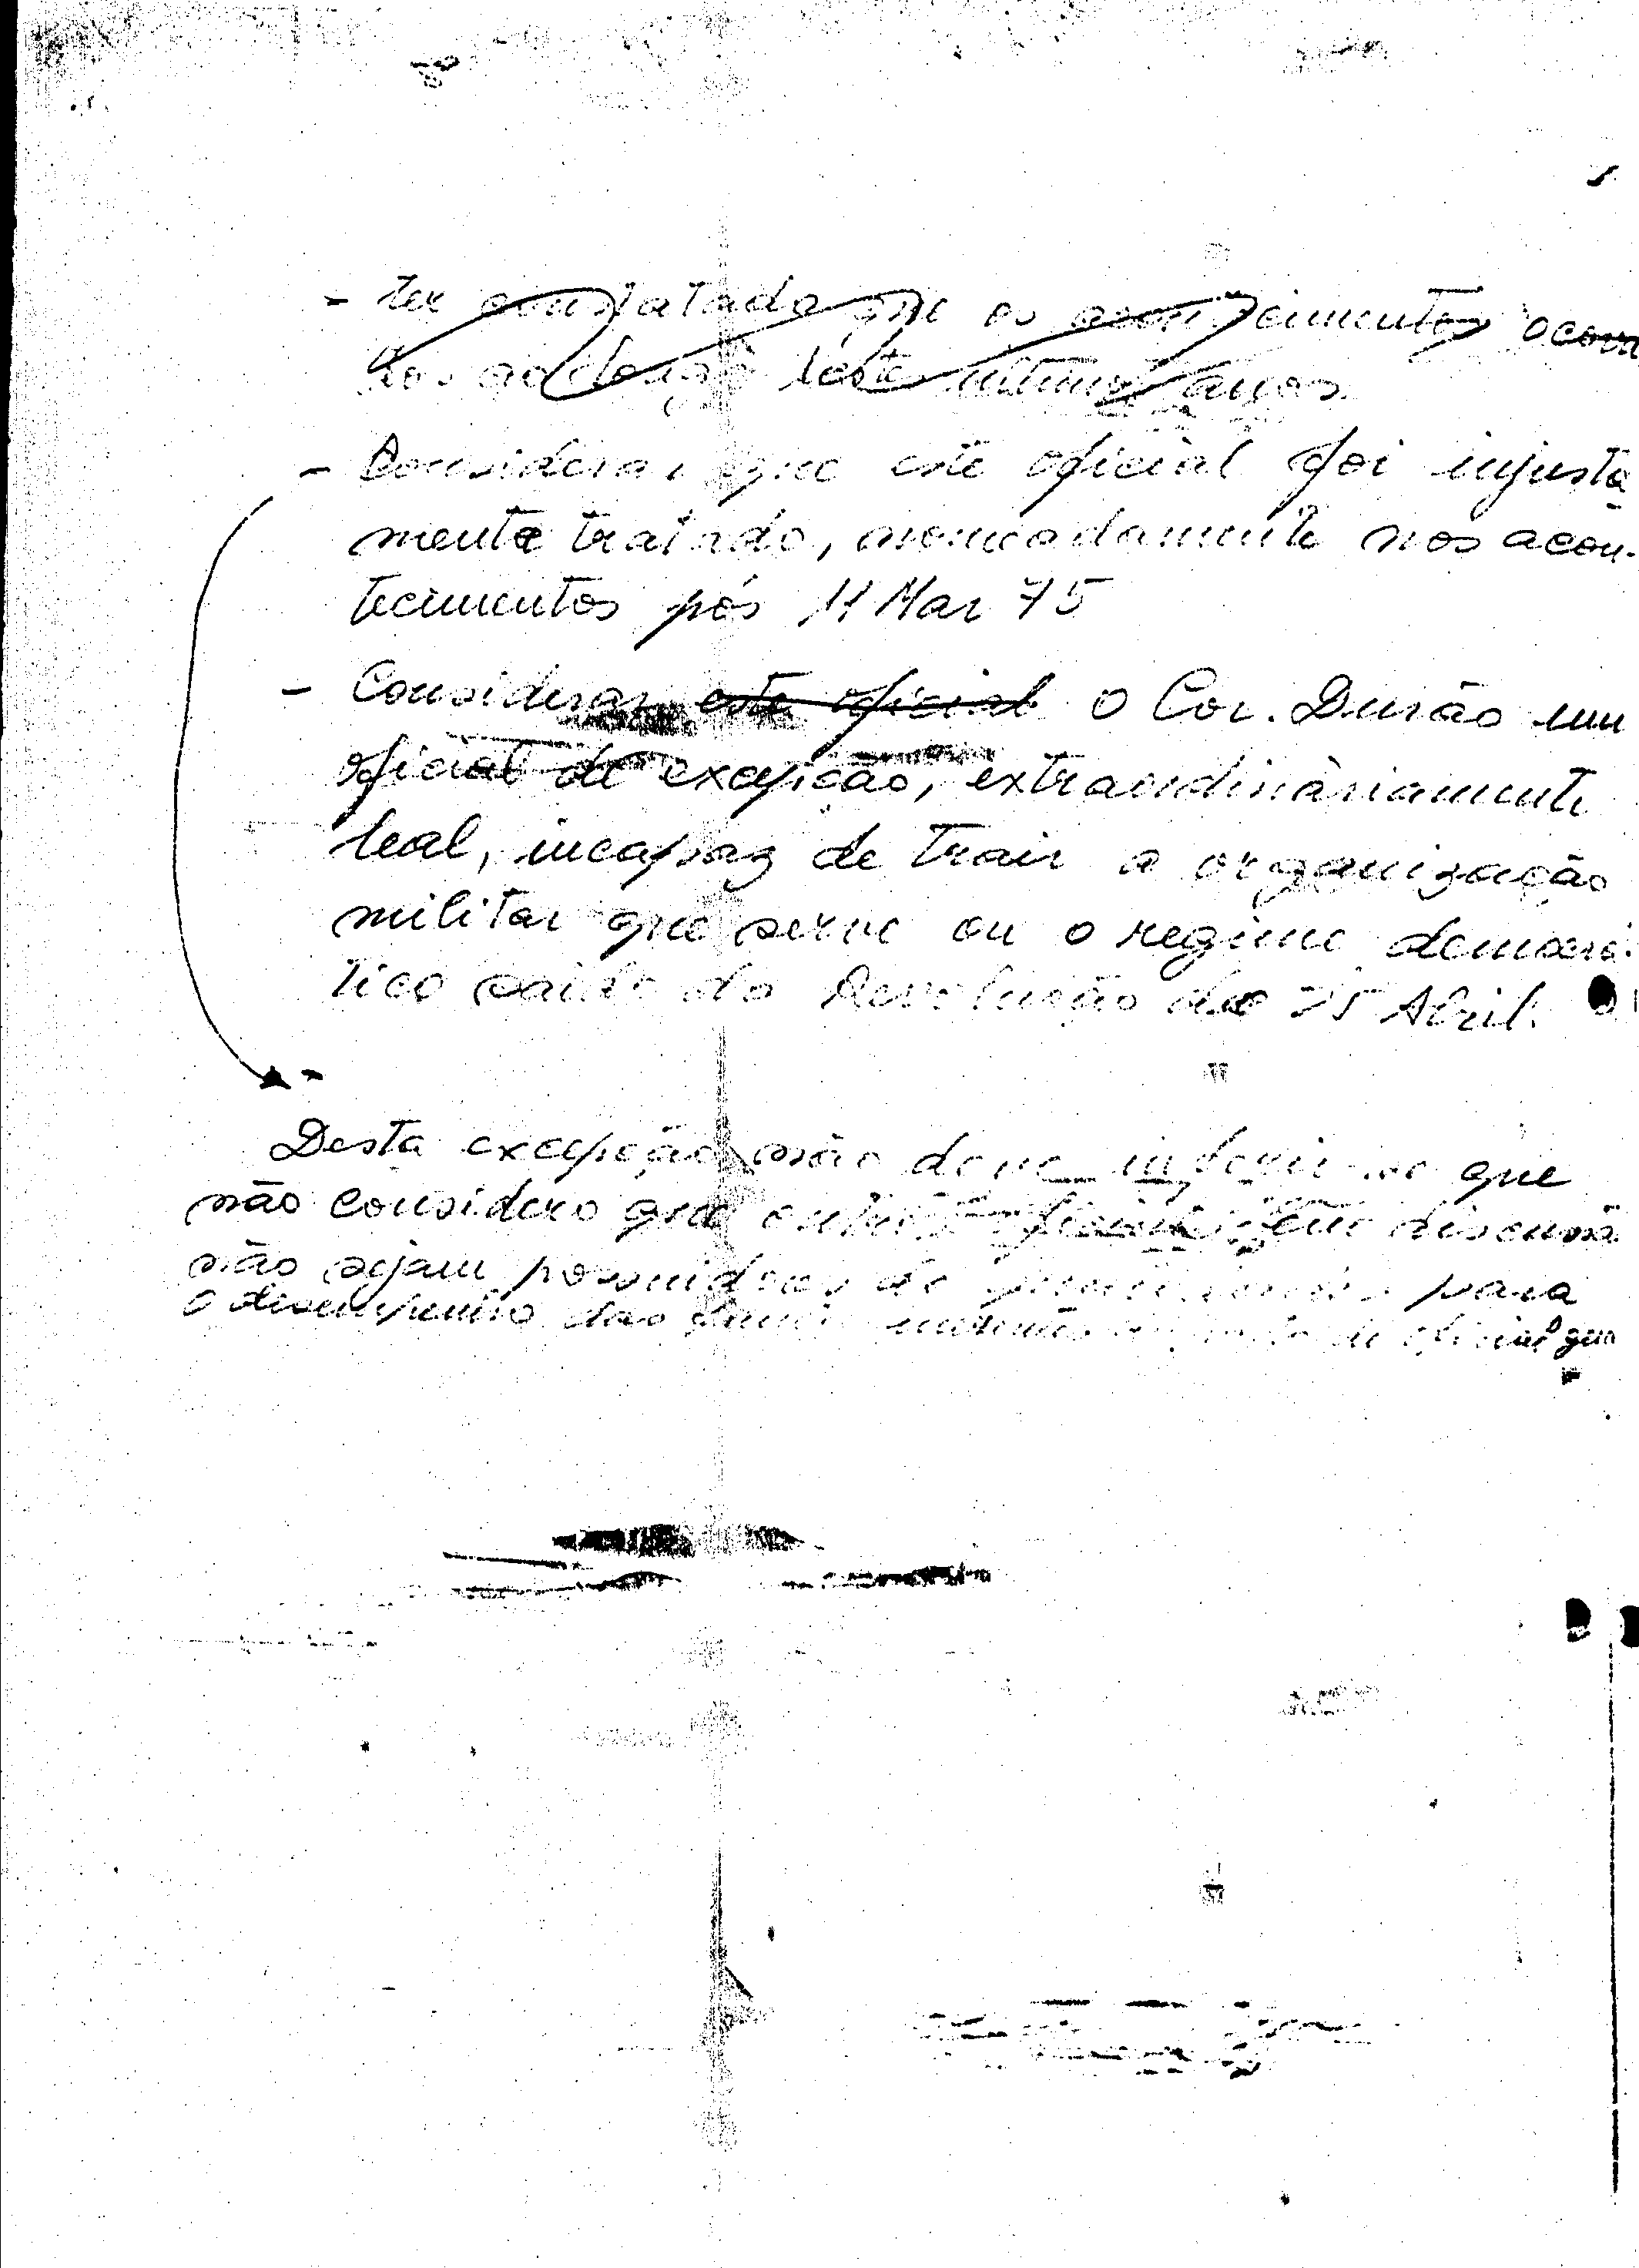 - ter constatado que os acontecimentos
ao longo destes últimos anos.
- Considerar que este oficial foi injusta
mente tratado, nomeadamente nos acon-
tecimentos pós 11 Mar 75
- Considerar este oficial o Cor. Durão um
oficial de excepção, extraordináriamente
leal, incapaz de trair a organização
militar que serve ou o regime democrá-
tico saido da Revolução de 25 Abril.
-
Desta excepção não deve inferir-se que
não considero que outros oficiais em
não sejam possuidores de para
o desempenho das de oficial que